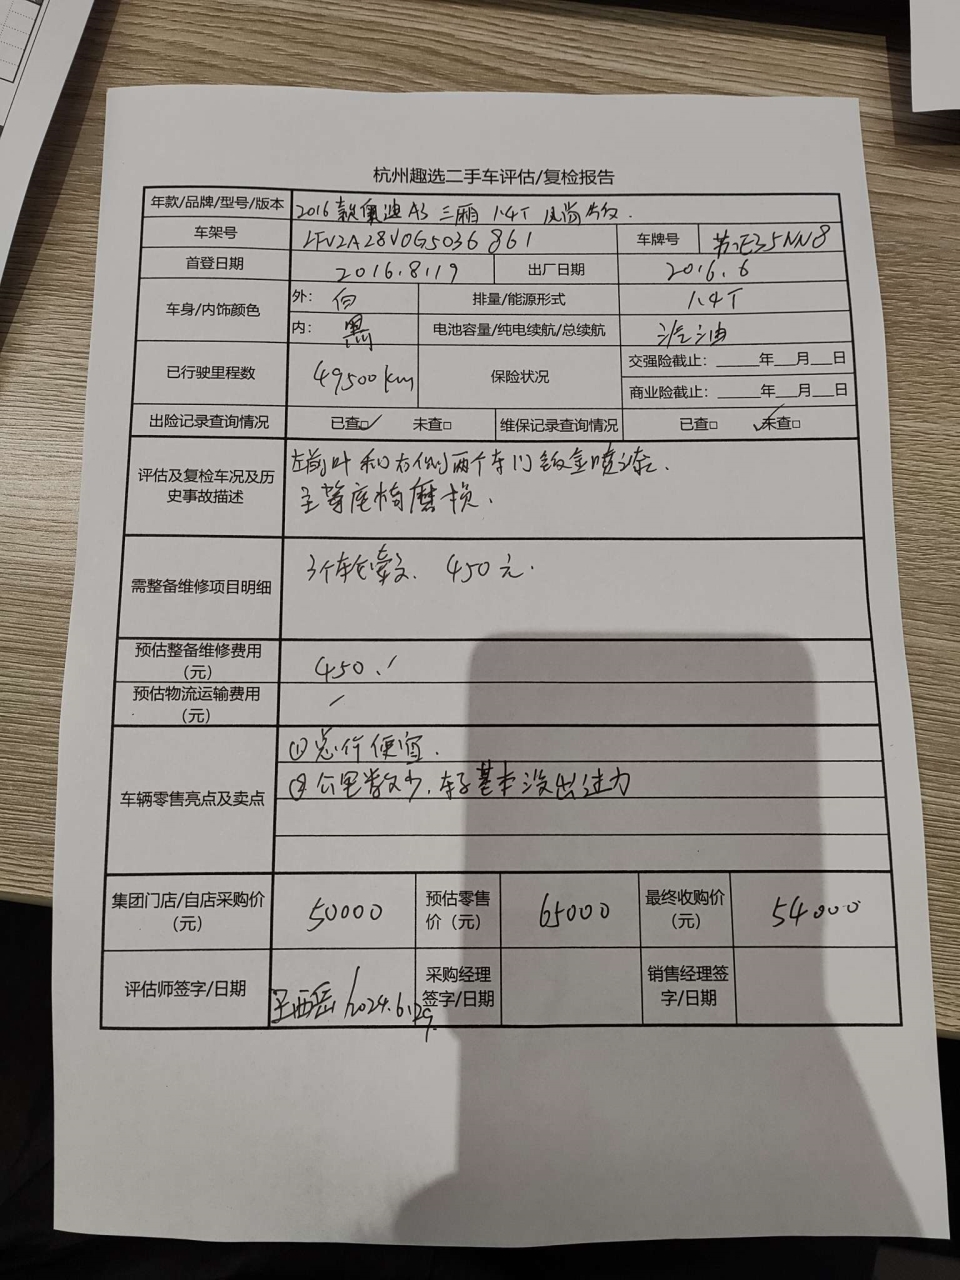 杭州趣选二手车评估/复检报告
年款/品牌/型号/版本 2016款奥迪A3 三厢 1.4T 风尚版.
车架号 LFV2A28V0G5036861 车牌号 苏E35NN8
首登日期 2016.8.19 出厂日期 2016.6
车身/内饰颜色 外: 白 排量/能源形式 1.4T
内: 黑 电池容量/纯电续航/总续航 汽油
已行驶里程数 49500km 保险状况 交强险截止: ______年___月___日
商业险截止: ______年___月___日
出险记录查询情况 已查□✓ 未查□ 维保记录查询情况 已查□ ✓未查□
评估及复检车况及历史事故描述 左前叶和右侧两个车门钣金喷漆.
主驾座椅磨损.
需整备维修项目明细 3个轮毂 450元.
预估整备维修费用(元) 450.
预估物流运输费用(元) /
车辆零售亮点及卖点 ① 便宜.
② 公里数少.车子基本没出过力
集团门店/自店采购价(元) 50000 预估零售价(元) 65000 最终收购价(元) 54000
评估师签字/日期 /2024.6.29. 采购经理签字/日期 销售经理签字/日期